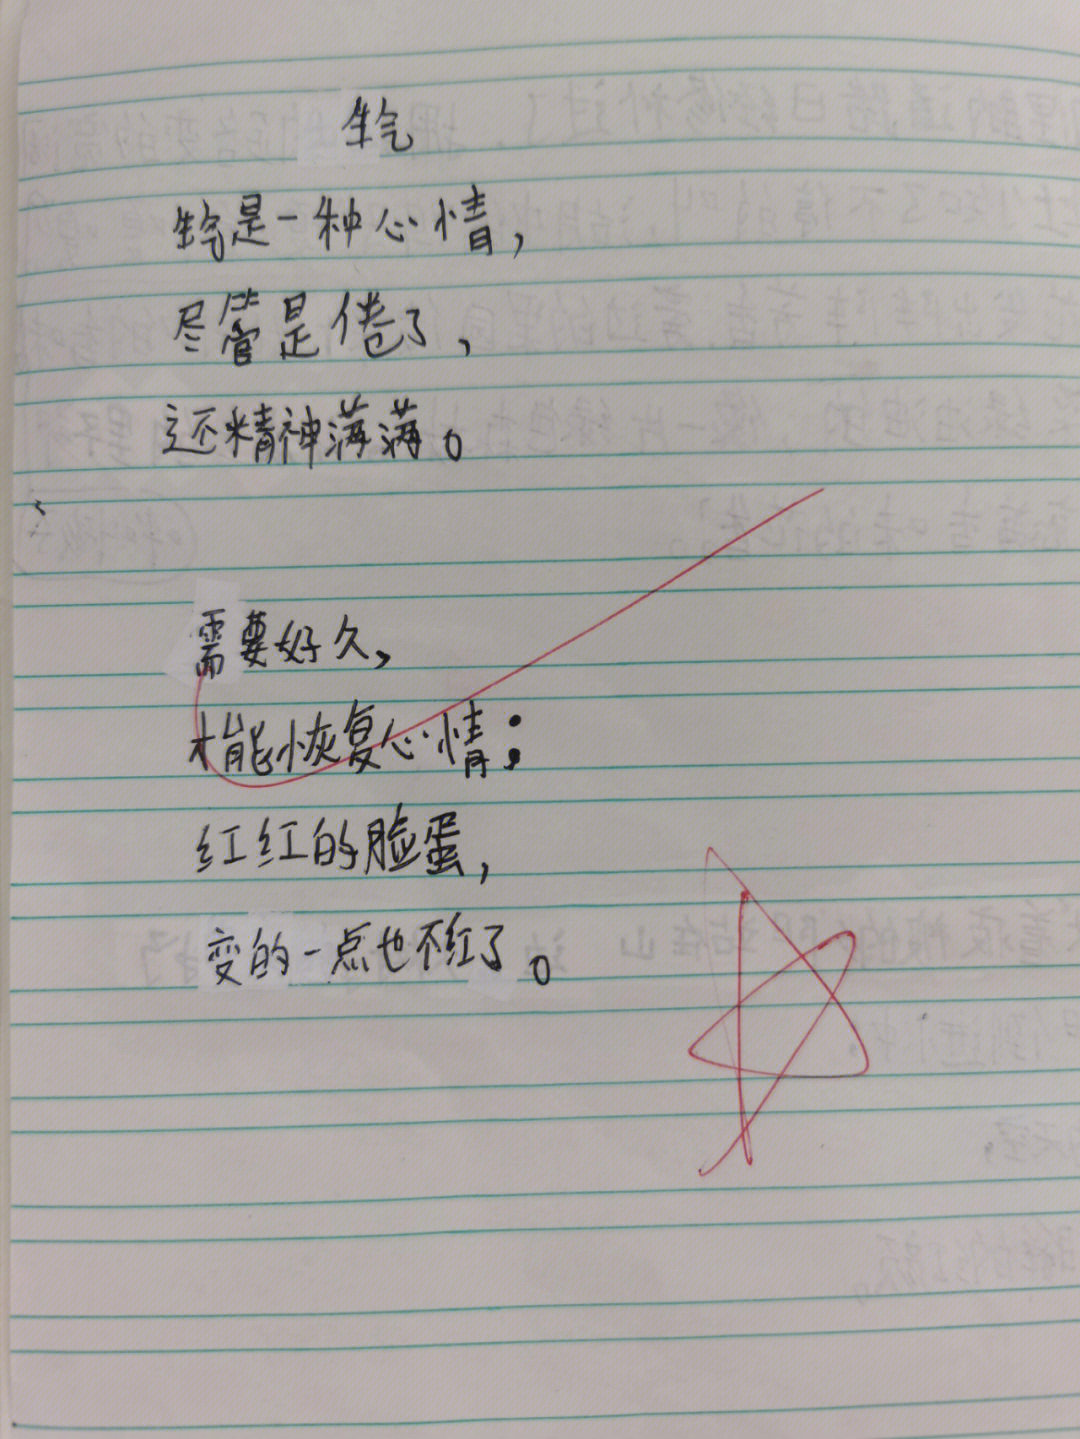 生气
生气是一种心情，
尽管是倦了，
还精神满满。
需要好久，
才能恢复心情；
红红的脸蛋，
变的一点也不红了。